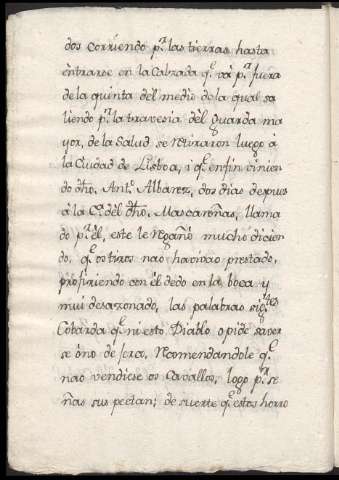 dos corriendo p.r las tierras hasta
entrarse en la Calzada q.e và p.r fuera
de la quinta del medio de la qual sa
liendo p.r la travesia del guarda ma
yor, de la Salud se retiraron luego à
la Ciudad de Lisboa, i q.e enfin vinien
do dho. Ant.o Albarez, dos dias despues
à la C.a del dho. Mascareñas, llama
do p.r èl, este le regañò mucho dicien
do, q.e os tiros nao haviao prestado,
profiriendo con èl dedo en la boca y
mui desazonado, las palabras sig.tes
Cobarda q.e ni esto Diablo o pide saver
se òno de Recomendandole q.e
nao vendiese os Cavallos, logo p.r se
ñas sus peetan; de suerte q.e estos horro